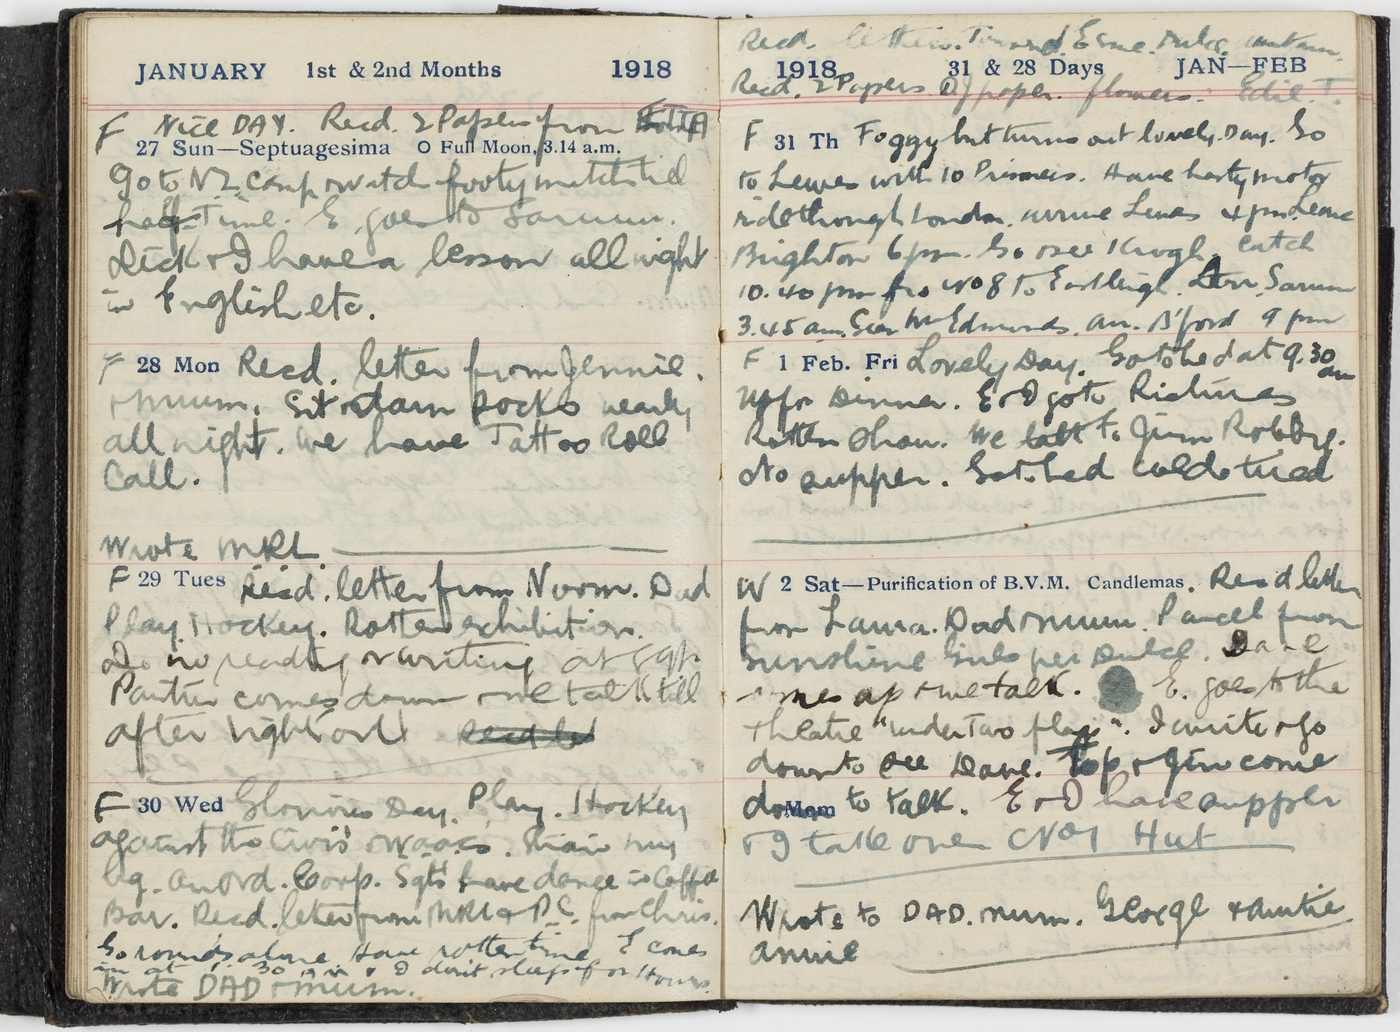 JANUARY 1st & 2nd Months 1918
F Nice DAY. Recd. 2 Papers from
27 Sun—Septuagesima O Full Moon, 3.14 a.m.
Go to NZ camp & watch footy match till
half-Time. E. goes to Sarum.
Dick & I have a lesson all night
in English etc.
F 28 Mon Recd. letter from Jennie.
& mum. Sit & darn socks nearly
all night. We have Tattoo Roll
Call.
Wrote MRL
F 29 Tues Recd. letter from Norm. Dad
Play Hockey. Rotten exhibition.
Do no reading or writing at
comes down & we talk till
after lights out
F 30 Wed Glorious Day. Play. Hockey
against the Civis & Waacs. Strain my
leg. an Ord. Corp. Sgts have dance in Coffee
Bar. Recd. letter from MRL & P.C. from Chris.
Go rounds alone. Have rotten time. E comes
in at 30 & I don't sleep for Hours.
Wrote DAD & mum.
Recd. letters. Esme. Dulce.
1918 31 & 28 Days JAN—FEB
Recd. 2 Papers. paper. flowers. Edie T.
F 31 Th Foggy but turns out lovely Day. Go
to Lewes with 10 Prisoners. Have hasty motor
ride through London. arrive Lewes 4 pm. Leave
Brighton 6 pm. Go & see Krogh. Catch
10.40 pm fro No 8 to Eastleigh. Arr. Sarum
3.45 am. See Mr Edmunds. arr. B'ford 9 pm
F 1 Feb. Fri Lovely Day. Go to bed at 9.30 am
up for Dinner. E & I go to Pictures
Rotten Show. We talk to Jim
No supper. Go to bed cold & tired
W 2 Sat—Purification of B.V.M. Candlemas. Recd letter
from Laura. Dad & mum. Parcel from
Sunshine Girls per Dulce. Dave
comes up & we talk. E. goes to the
Theatre "under Two flags". I write & go
down to see Dave. Pop & Jim come
down to talk. E & I have supper
& I take over No 1 Hut
Wrote to DAD. mum. George & auntie
annie